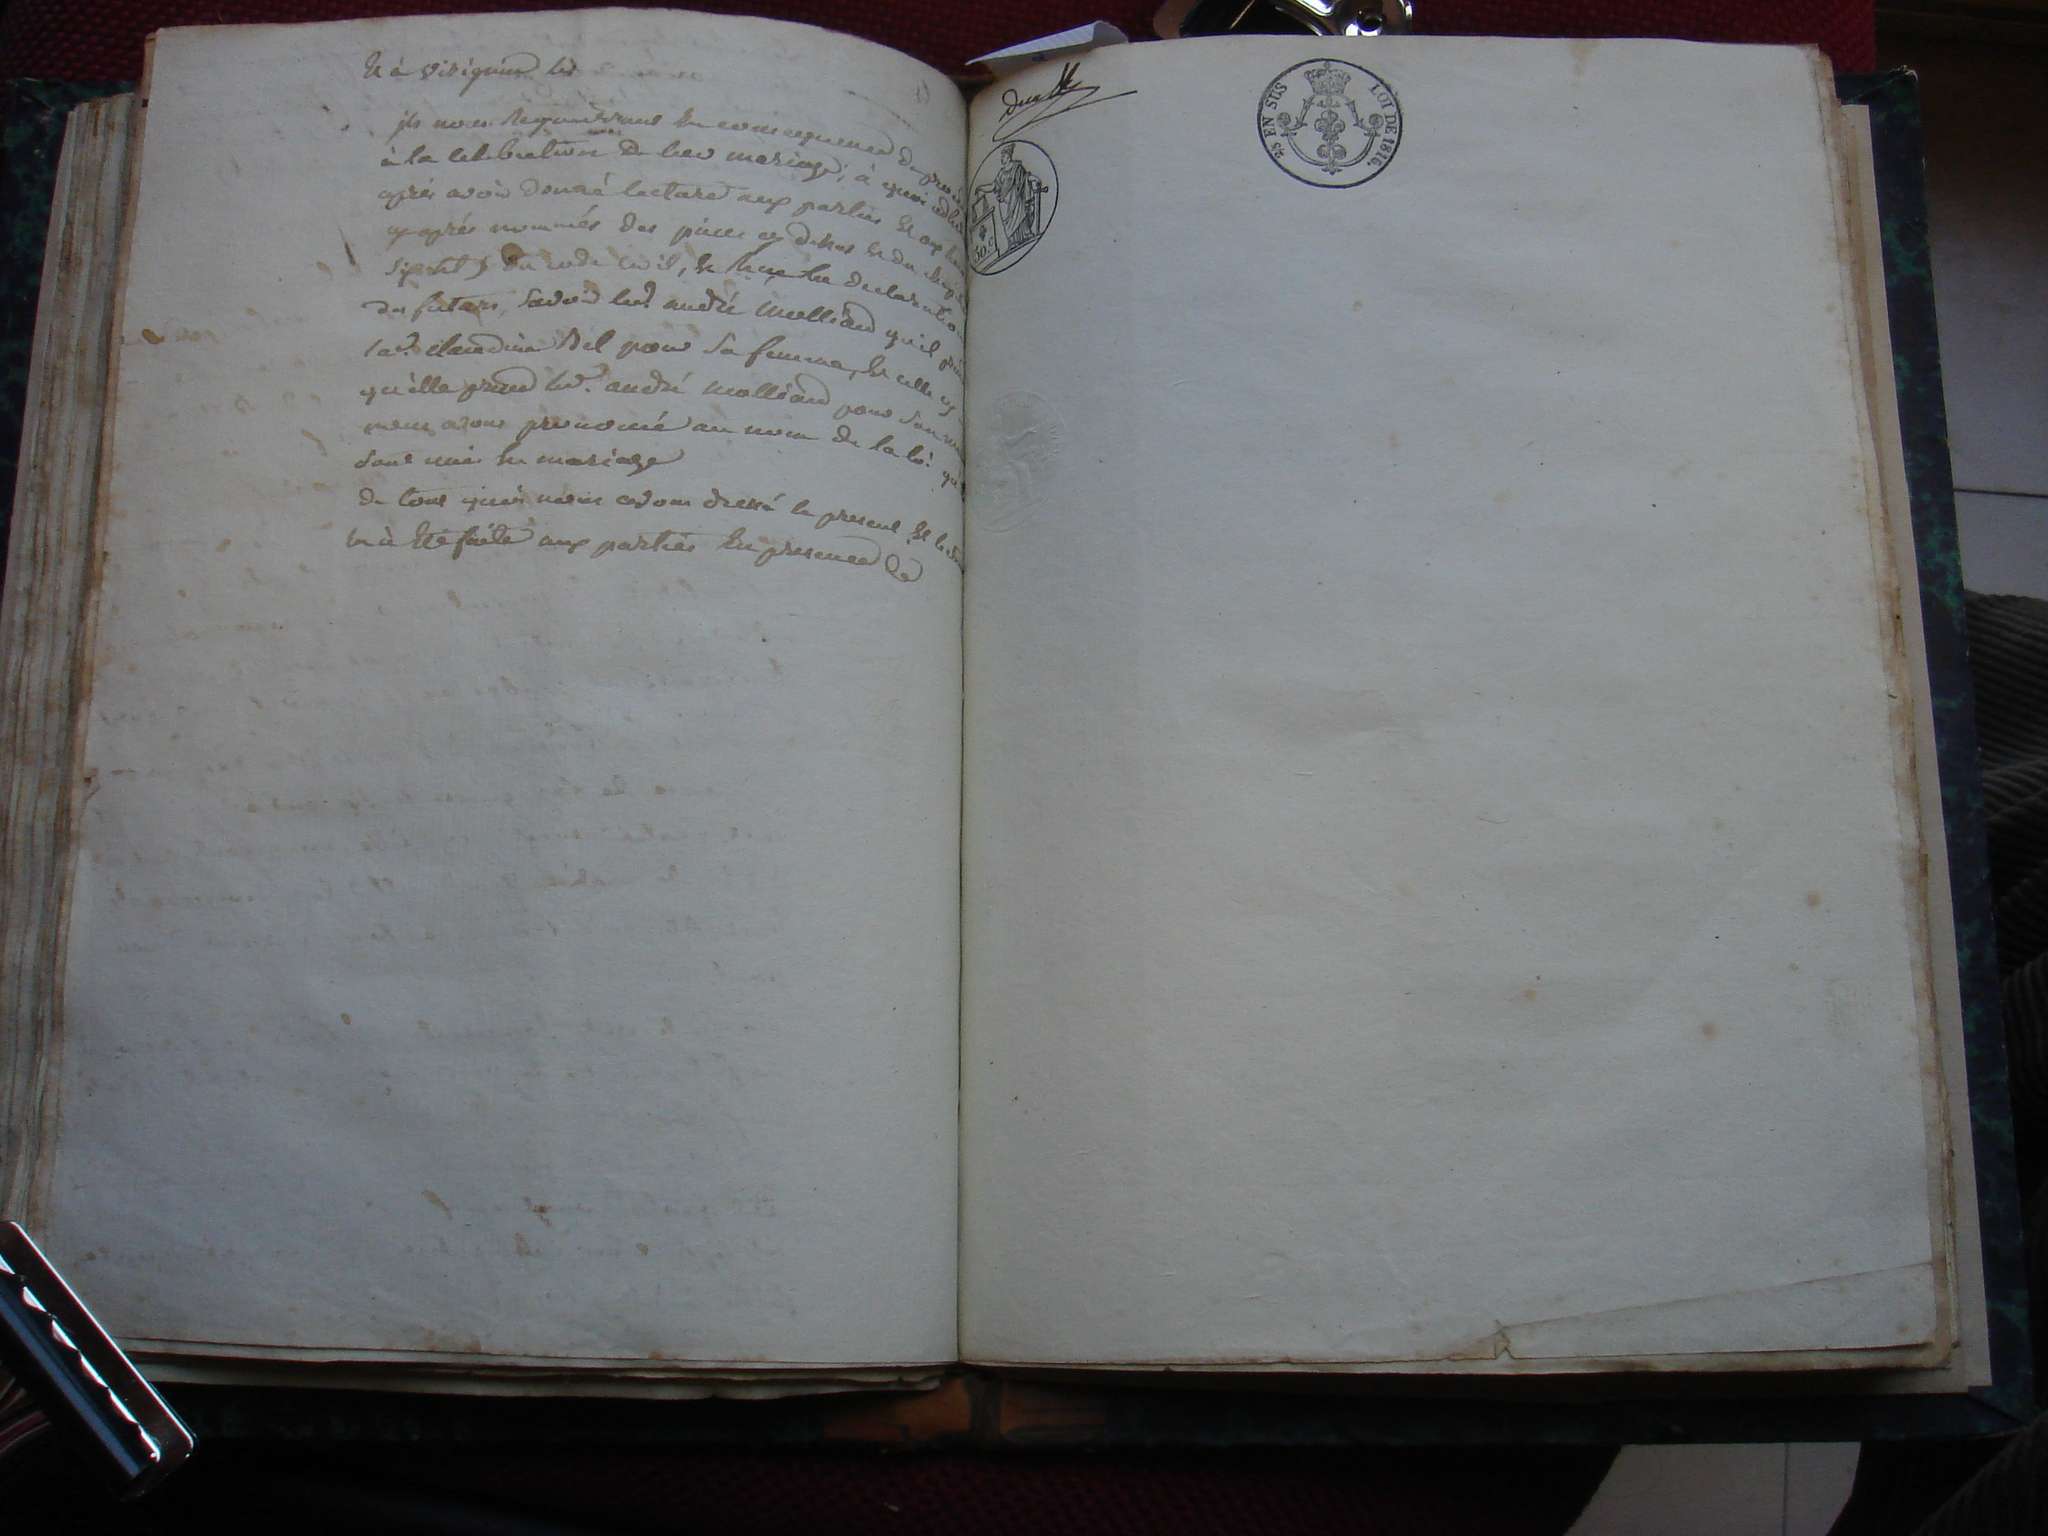 Et à virignin les
ils nous requierrent en consequence de proceder
à la celebration de leur mariage, à quoi
après avoir donné lecture aux parties et aux
cy après nommés des pieces cy dessus et du chapitre
six du code civil, et sur les declarations
des futurs, savoir led.t andré Molliard qu'il prend
lad.e claudine Bel pour sa femme, et celle cy
qu'elle prend led.t andré Molliard pour son
nous avons prononcé au nom de la loi qu
sont unis en mariage
de tout quoi nous avons dressé le present et lecture
en a été faite aux parties en presence de
50 c
2/5 EN SUS LOI DE 1816.